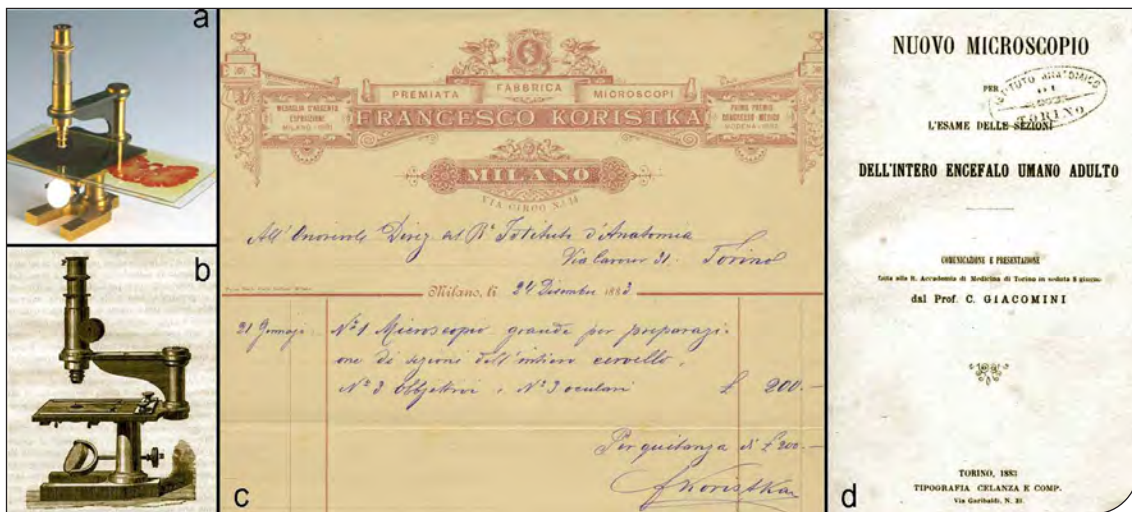 a
b
PREMIATA FABBRICA MICROSCOPI
MEDAGLIA D'ARGENTO
ESPOSIZIONE
MILANO 1881
PRIMO PREMIO
CONGRESSO MEDICO
MODENA 1882
FRANCESCO KORISTKA
MILANO
VIA CIRCO N. 14
All' Onorevole Direz del Ro Istituto d'Anatomia
Via Cavour 31. Torino
Milano, li 24 Dicembre 1883
21 Gennajo No 1 Microscopio grande per preparazi-
one di sezioni dell'intiero cervello,
No 3 Obbjettivi, No 3 oculari £ 200.-
Per quitanza di £ 200.-
FKoristka
c
NUOVO MICROSCOPIO
PER
L'ESAME DELLE SEZIONI
DELL'INTERO ENCEFALO UMANO ADULTO
ISTITUTO ANATOMICO
DI
TORINO
COMUNICAZIONE E PRESENTAZIONE
fatta alla R. Accademia di Medicina di Torino in seduta 8 giugno
dal Prof. C. GIACOMINI
TORINO, 1883
TIPOGRAFIA CELANZA E COMP.
Via Garibaldi, N. 33.
d